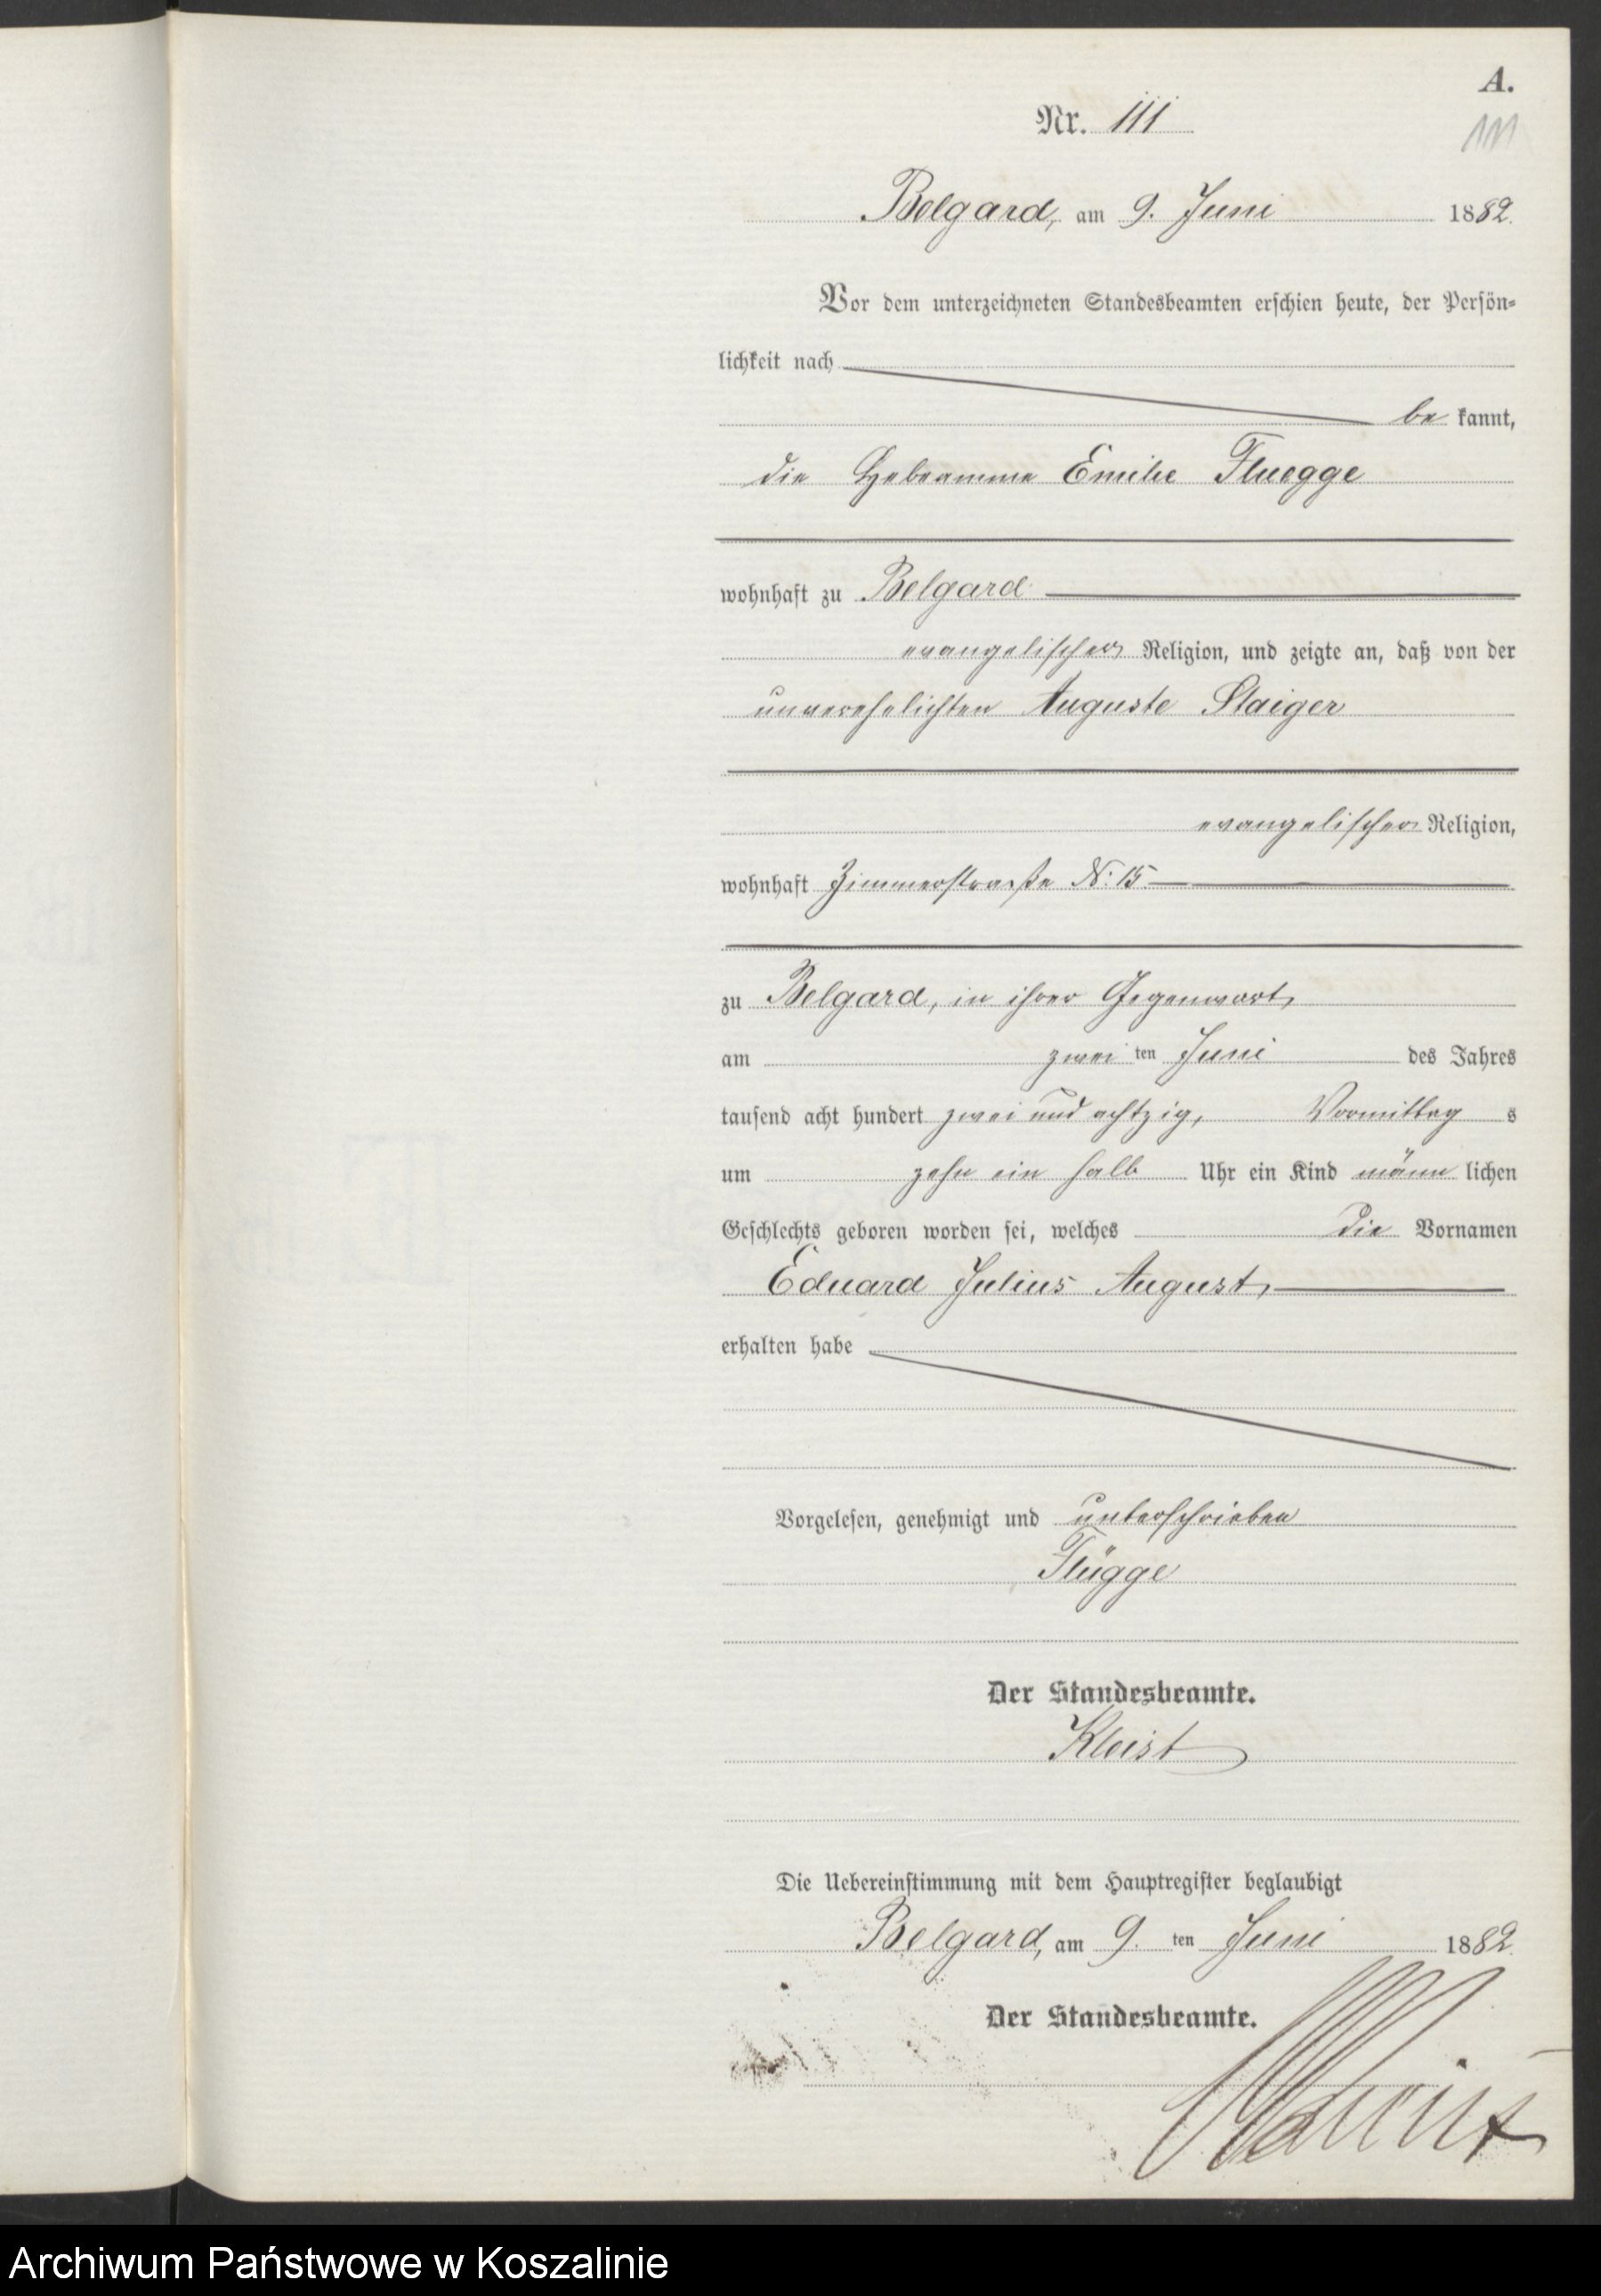 A.
Nr. 111
111
Belgard, am 9. Juni 1882.
Vor dem unterzeichneten Standesbeamten erschien heute, der Persön-
lichkeit nach
be kannt,
die Hebeamme Emilie Fluegge
wohnhaft zu Belgard
evangelischer Religion, und zeigte an, daß von der
unverehelichten Auguste Staiger
evangelischer Religion,
wohnhaft Zimmerstraße N: 15
zu Belgard, in ihrer Gegenwart,
am zwei ten Juni des Jahres
tausend acht hundert zwei und achtzig, Vormittag s
um zehn ein halb Uhr ein Kind männ lichen
Geschlechts geboren worden sei, welches die Vornamen
Eduard Julius August,
erhalten habe
Vorgelesen, genehmigt und unterschrieben
Flügge
Der Standesbeamte.
Kleist
Die Uebereinstimmung mit dem Hauptregister beglaubigt
Belgard, am 9. ten Juni 1882.
Der Standesbeamte.
Archiwum Państwowe w Koszalinie